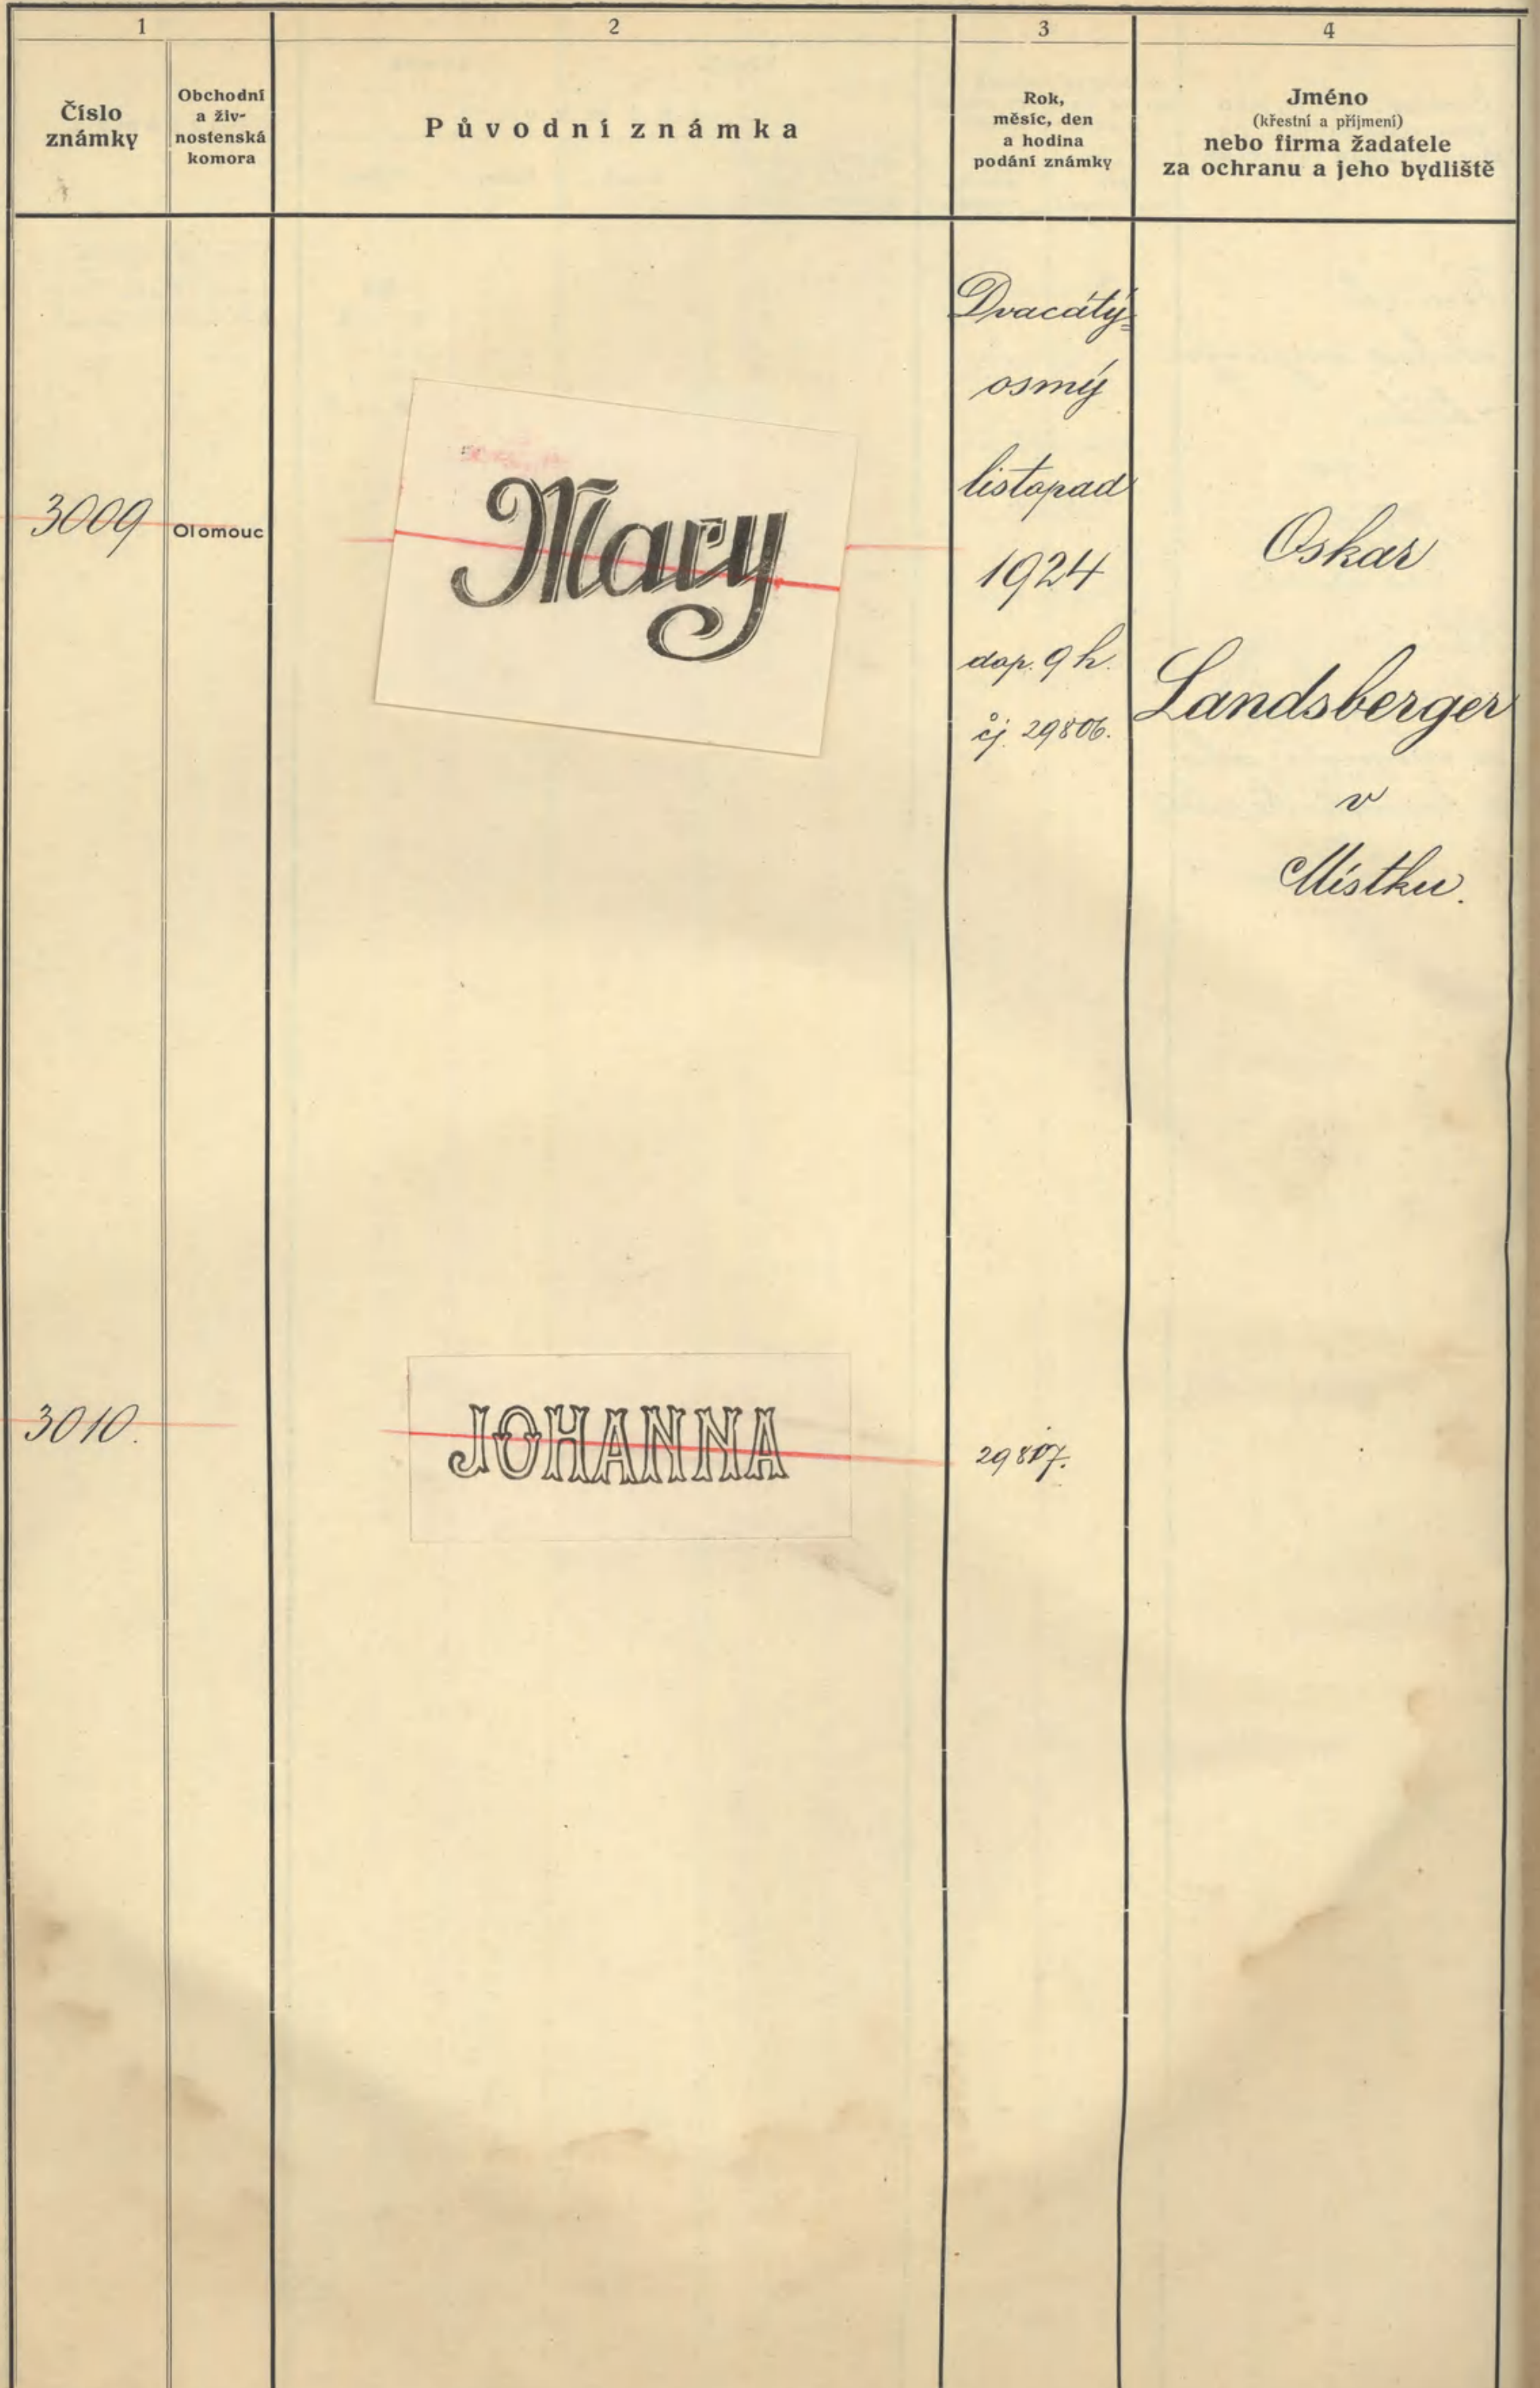 1
2
3
4
Číslo
známky
Obchodní
a živ-
nostenská
komora
Původní známka
Rok,
měsíc, den
a hodina
podání známky
Jméno
(křestní a příjmení)
nebo firma žadatele
za ochranu a jeho bydliště
3009
Olomouc
Mary
Dvacátý-
osmý
listopad
1924
dop. 9 h.
čj. 29806.
Oskar
Landsberger
v
Místku.
3010.
JOHANNA
29807.